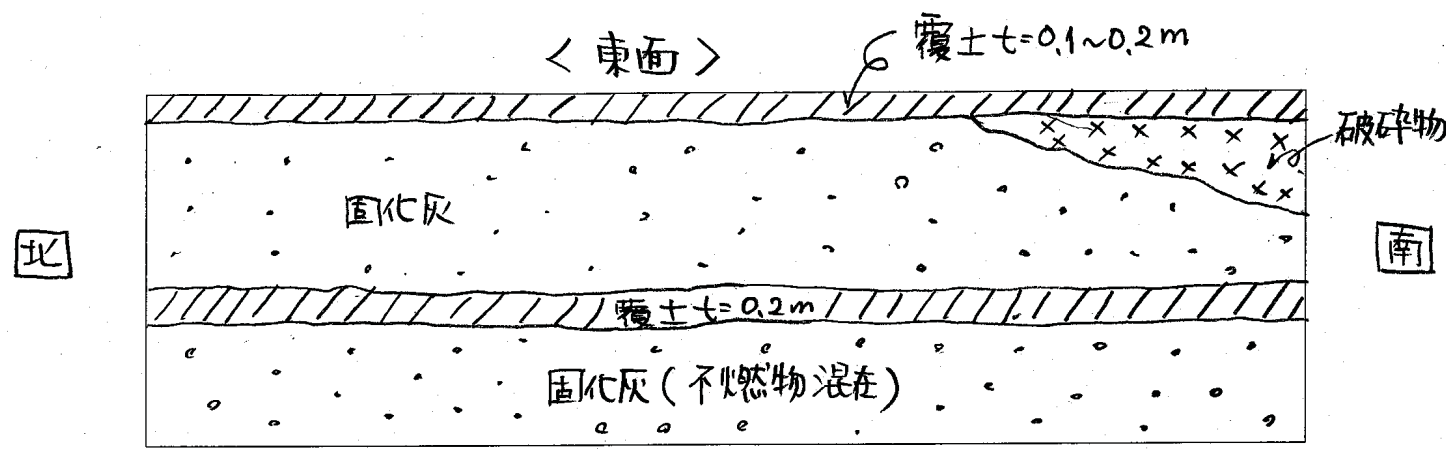 <東面>
覆土 t=0.1~0.2m
破砕物
固化灰
北
南
覆土 t=0.2m
固化灰(不燃物混在)